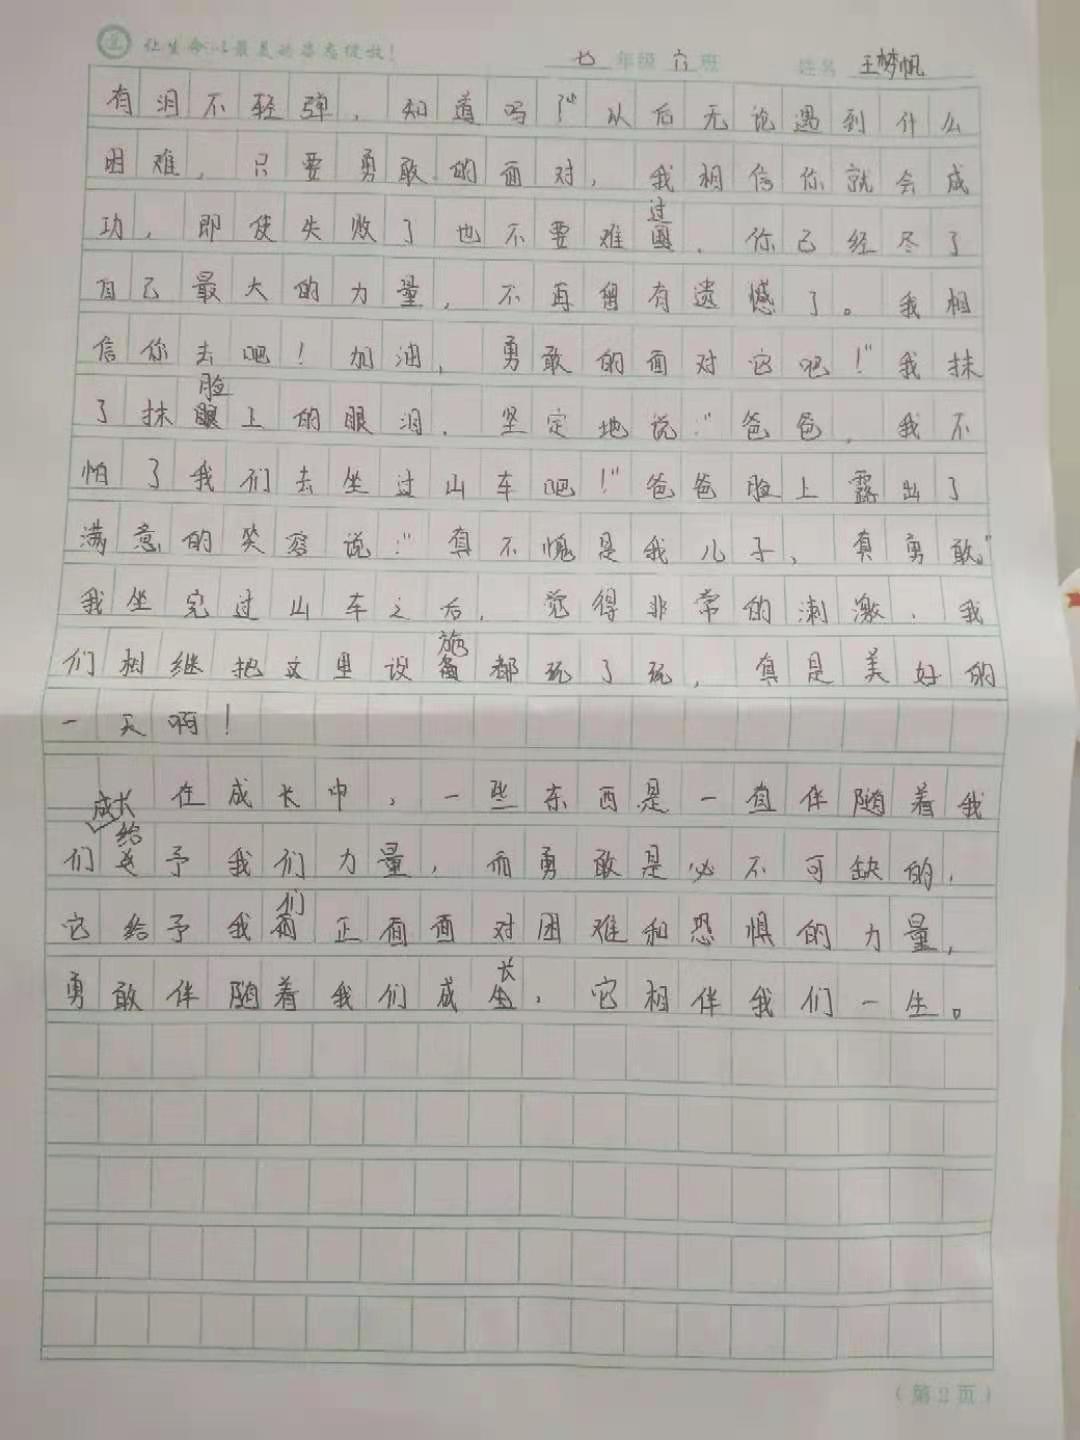 让生命以最美的姿态绽放!
七年级六班 姓名 王梦帆
有泪不轻弹,知道吗?"以后无论遇到什么
困难,只要勇敢的面对,我相信你就会成
功,即使失败了也不要难过,你已经尽了
自己最大的力量,不再留有遗憾了。我相
信你去吧!加油,勇敢的面对它吧!"我抹
了抹脸上的眼泪,坚定地说:"爸爸,我不
怕了我们去坐过山车吧!"爸爸脸上露出了
满意的笑容说:"真不愧是我儿子,真勇敢。"
我坐完过山车之后,觉得非常的刺激,我
们相继把文里设施都玩了玩,真是美好的
一天啊!
在成长中,一些东西是一直伴随着我
们成长给予我们力量,而勇敢是必不可缺的,
它给予我们正面面对困难和恐惧的力量,
勇敢伴随着我们成长,它相伴我们一生。
(第2页)